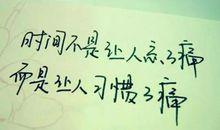 时间不是让人忘了痛
而是让人习惯了痛